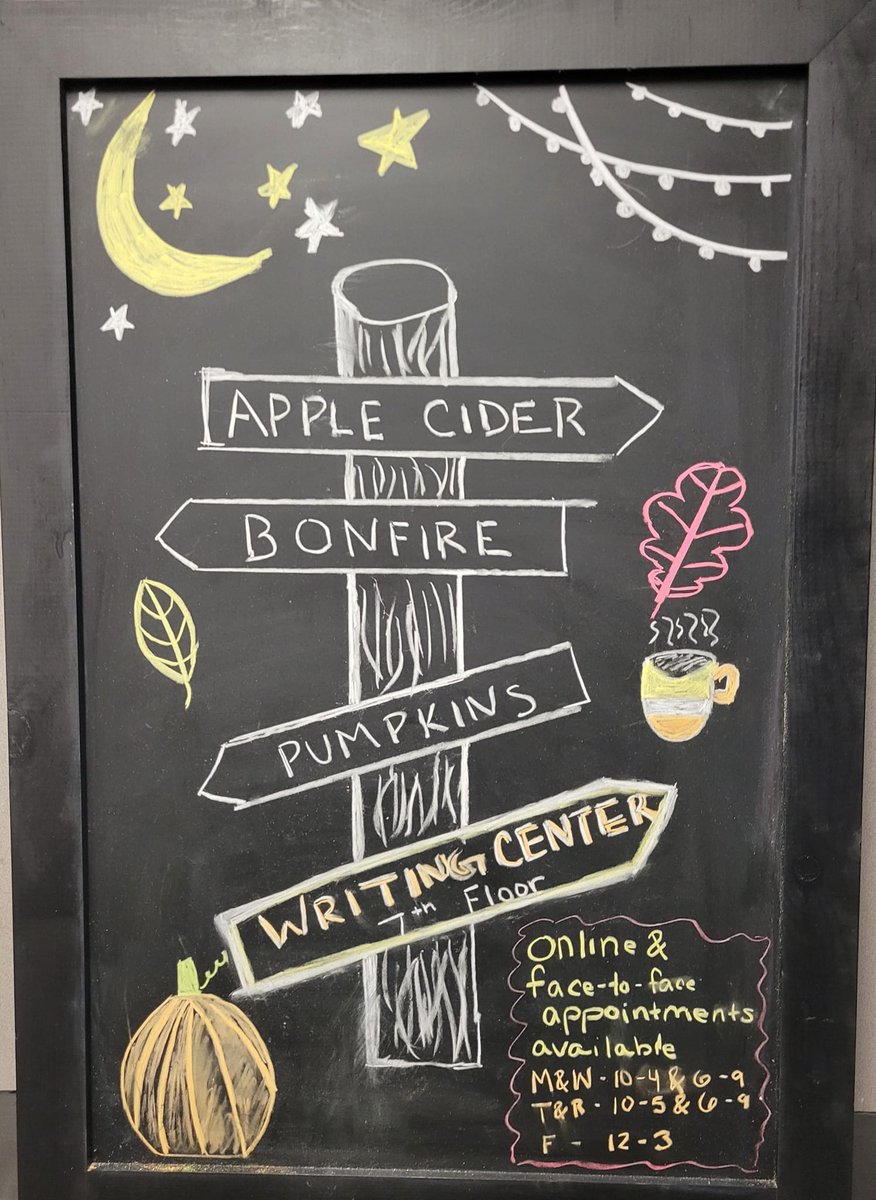 APPLE CIDER
BONFIRE
PUMPKINS
WRITING CENTER
7th Floor
Online &
face-to-face
appointments
available
M&W - 10-4 & 6-9
T&R - 10-5 & 6-9
F - 12-3